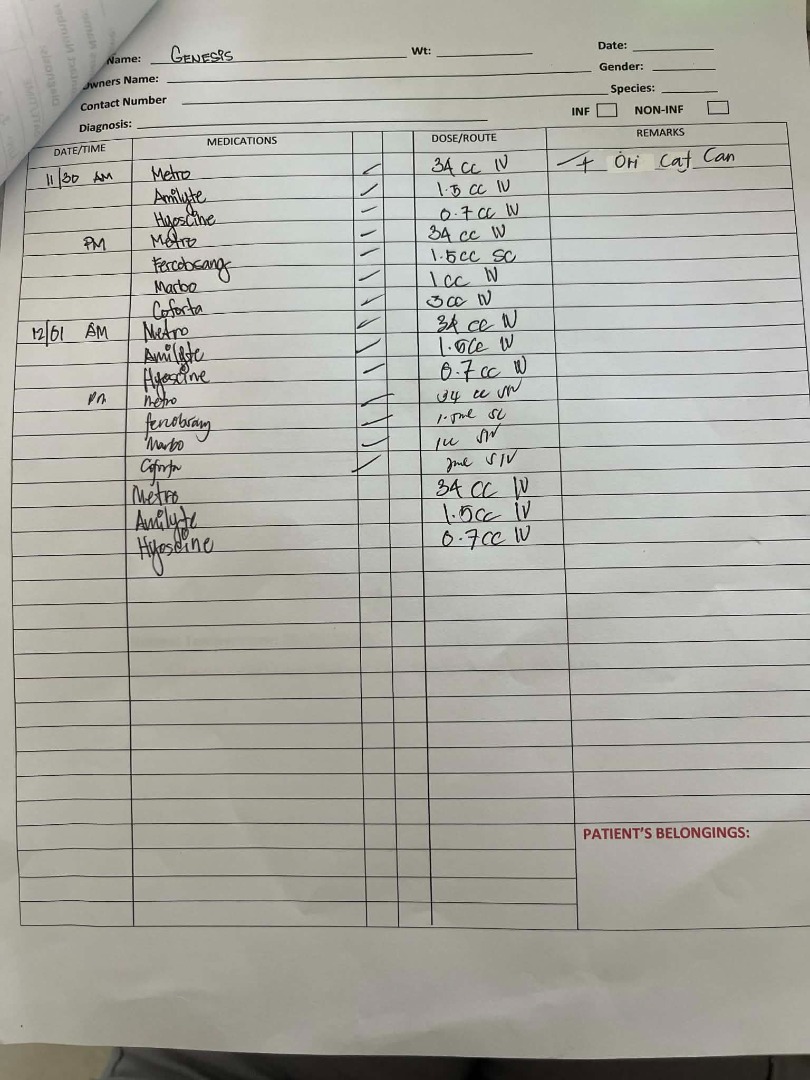 Name: GENESIS Wt: Date:
Owners Name: Gender:
Contact Number Species:
INF NON-INF
Diagnosis:
DATE/TIME MEDICATIONS DOSE/ROUTE REMARKS
11/30 AM Metro 34 cc IV + Ori Caf Can
Amilyte 1.5 cc IV
Hyoscine 0.7 cc IV
PM Metro 34 cc IV
Fercobsang 1.5cc SC
Marbo 1 cc IV
Coforta 3cc IV
12/01 AM Metro 34 cc IV
Amilyte 1.5cc IV
Hyoscine 0.7 cc IV
PM Metro 34 cc
fercobsang SC
Marbo 1cc
Coforta
Metro 34 CC IV
Amilyte 1.5cc IV
Hyoscine 0.7cc IV
PATIENT'S BELONGINGS: